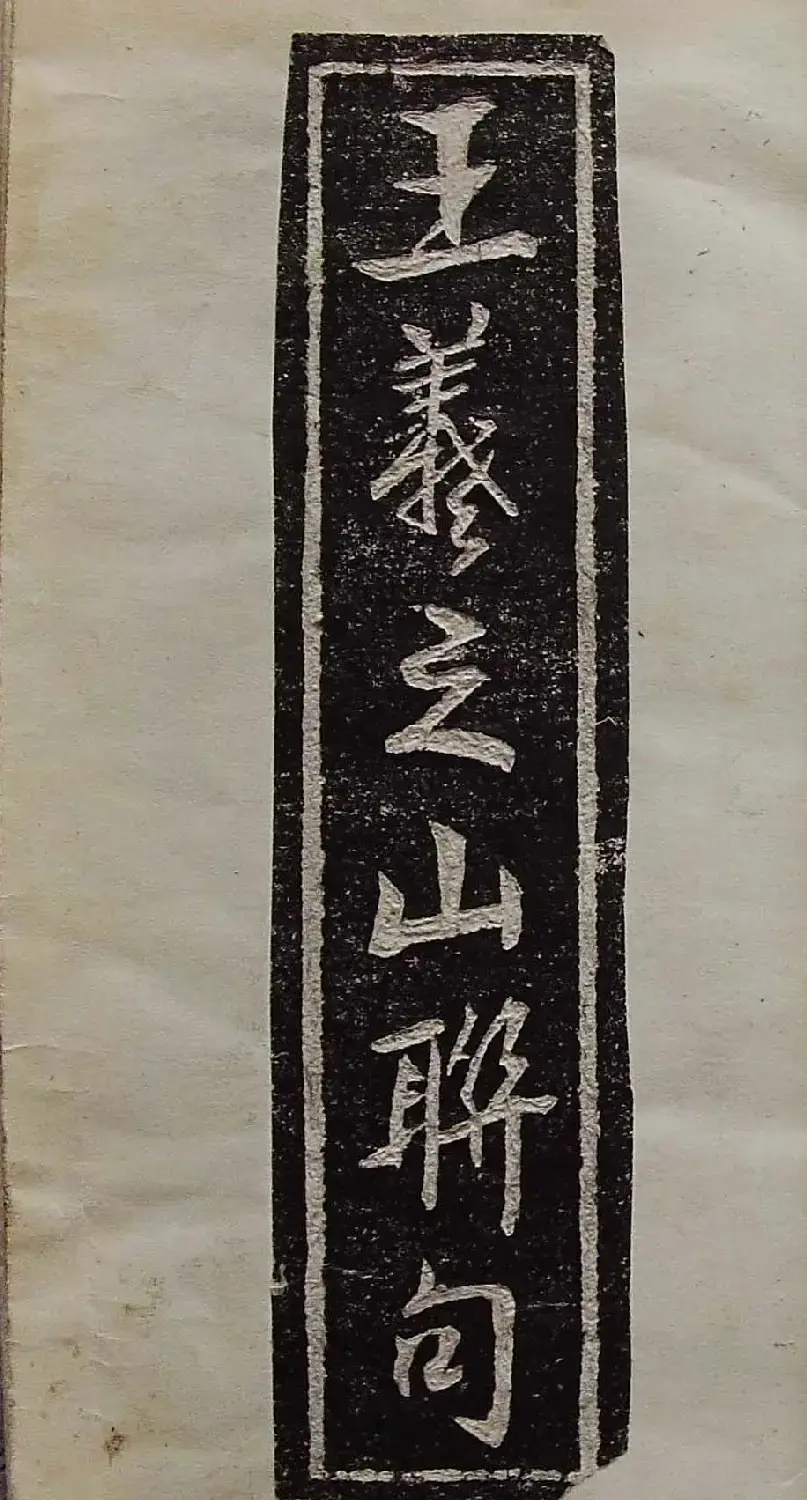 王羲之山聯句